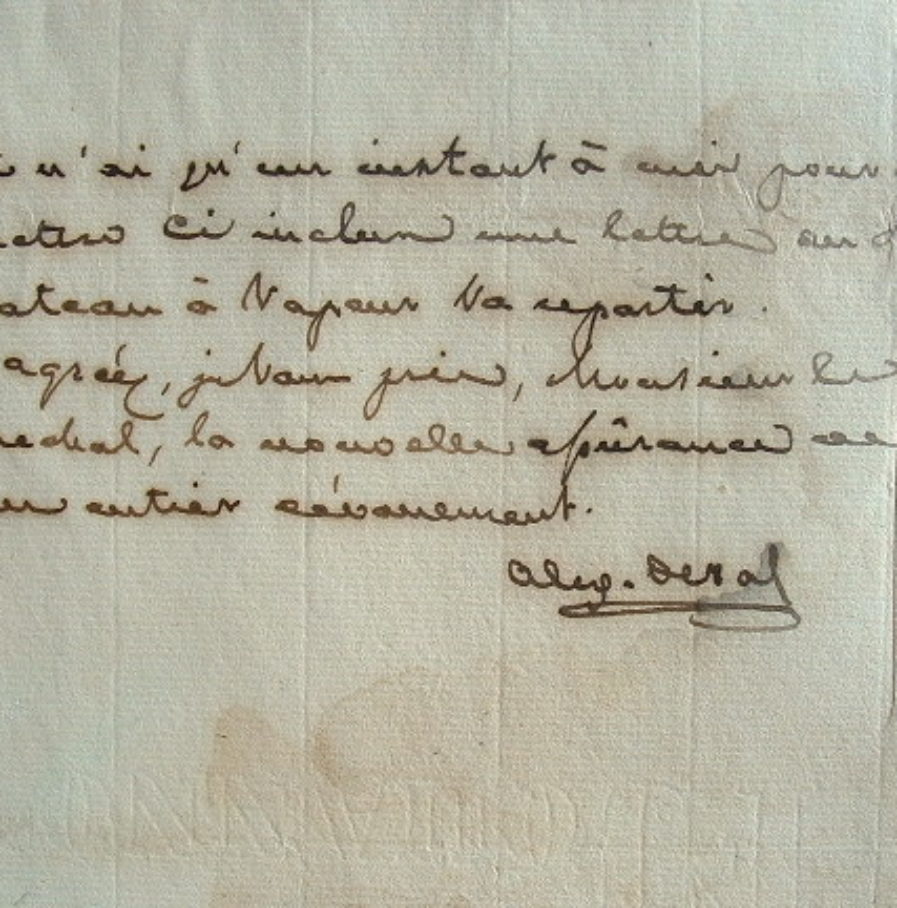 n'ai qu'un instant à moi pour
ci inclus une lettre au
ateau à Vapeur Va repartir.
agréez, je Vous prie, Monsieur le
réchal, la nouvelle assurance de
entier dévouement.
Alex. Deval